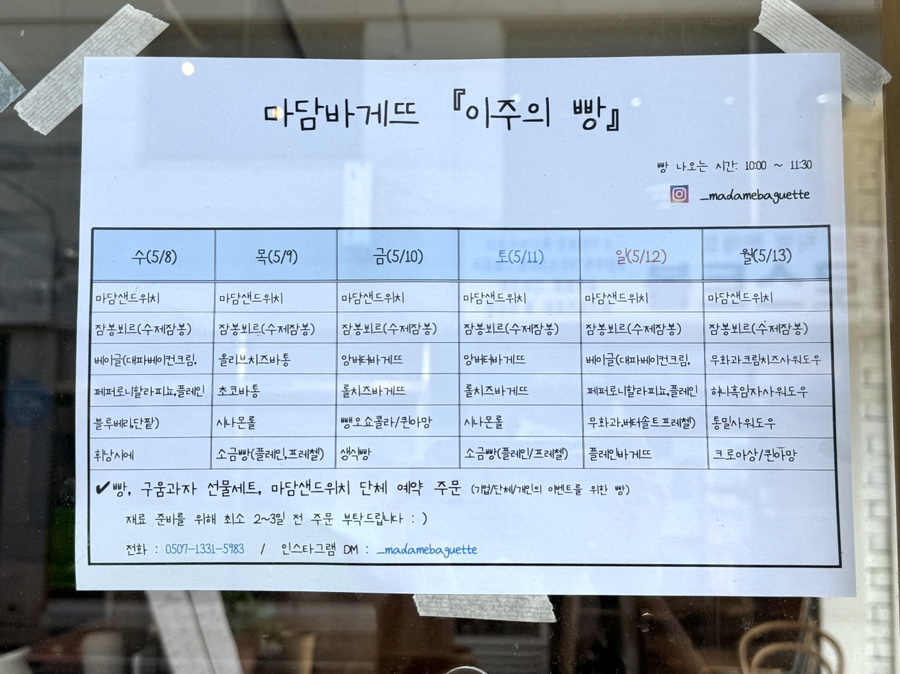 마담바게뜨 『이주의 빵』
빵 나오는 시간: 10:00 ~ 11:30
_madamebaguette
수(5/8) 목(5/9) 금(5/10) 토(5/11) 일(5/12) 월(5/13)
마담샌드위치 마담샌드위치 마담샌드위치 마담샌드위치 마담샌드위치 마담샌드위치
잠봉뵈르(수제잠봉) 잠봉뵈르(수제잠봉) 잠봉뵈르(수제잠봉) 잠봉뵈르(수제잠봉) 잠봉뵈르(수제잠봉) 잠봉뵈르(수제잠봉)
베이글(대파베이컨크림, 올리브치즈바통 앙버터바게뜨 앙버터바게뜨 베이글(대파베이컨크림, 무화과크림치즈사워도우
페퍼로니할라피뇨,플레인 초코바통 롤치즈바게뜨 롤치즈바게뜨 페퍼로니할라피뇨,플레인 허니흑임자사워도우
블루베리,단팥) 시나몬롤 뺑오쇼콜라/퀸아망 시나몬롤 무화과,버터솔트프레첼) 통밀사워도우
휘낭시에 소금빵(플레인,프레첼) 생식빵 소금빵(플레인/프레첼) 플레인바게뜨 크로아상/퀸아망
✔빵, 구움과자 선물세트, 마담샌드위치 단체 예약 주문 (기업/단체/개인의 이벤트를 위한 빵)
재료 준비를 위해 최소 2~3일 전 주문 부탁드립니다 : )
전화 : 0507-1331-5983 / 인스타그램 DM : _madamebaguette